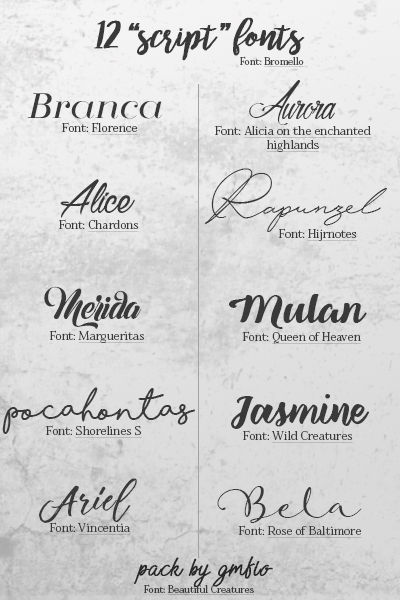 12 "script" fonts
Font: Bromello
Branca
Font: Florence
Aurora
Font: Alicia on the enchanted
highlands
Alice
Font: Chardons
Rapunzel
Font: Hijrnotes
Merida
Font: Margueritas
Mulan
Font: Queen of Heaven
pocahontas
Font: Shorelines S
Jasmine
Font: Wild Creatures
Ariel
Font: Vincentia
Bela
Font: Rose of Baltimore
pack by gmfio
Font: Beautiful Creatures